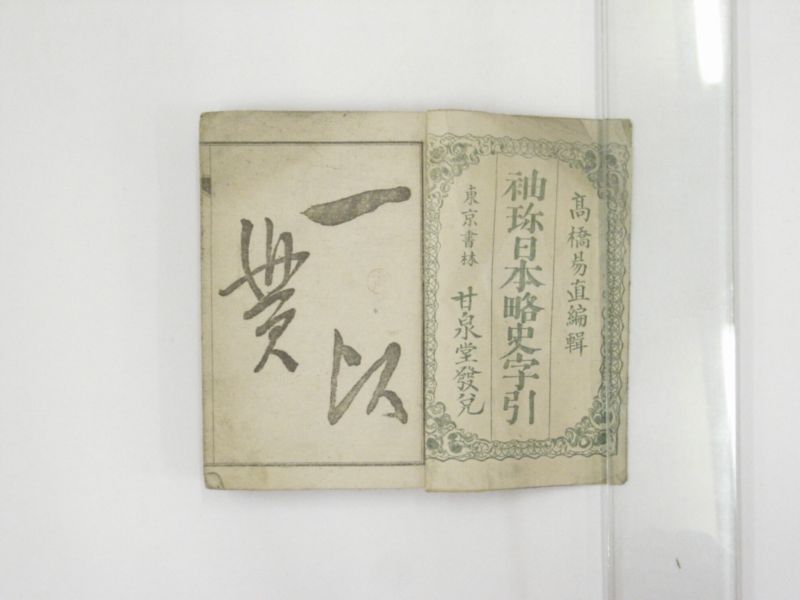 高橋易直編輯
袖珎日本略史字引
東京書林 甘泉堂發兌
一以
貫